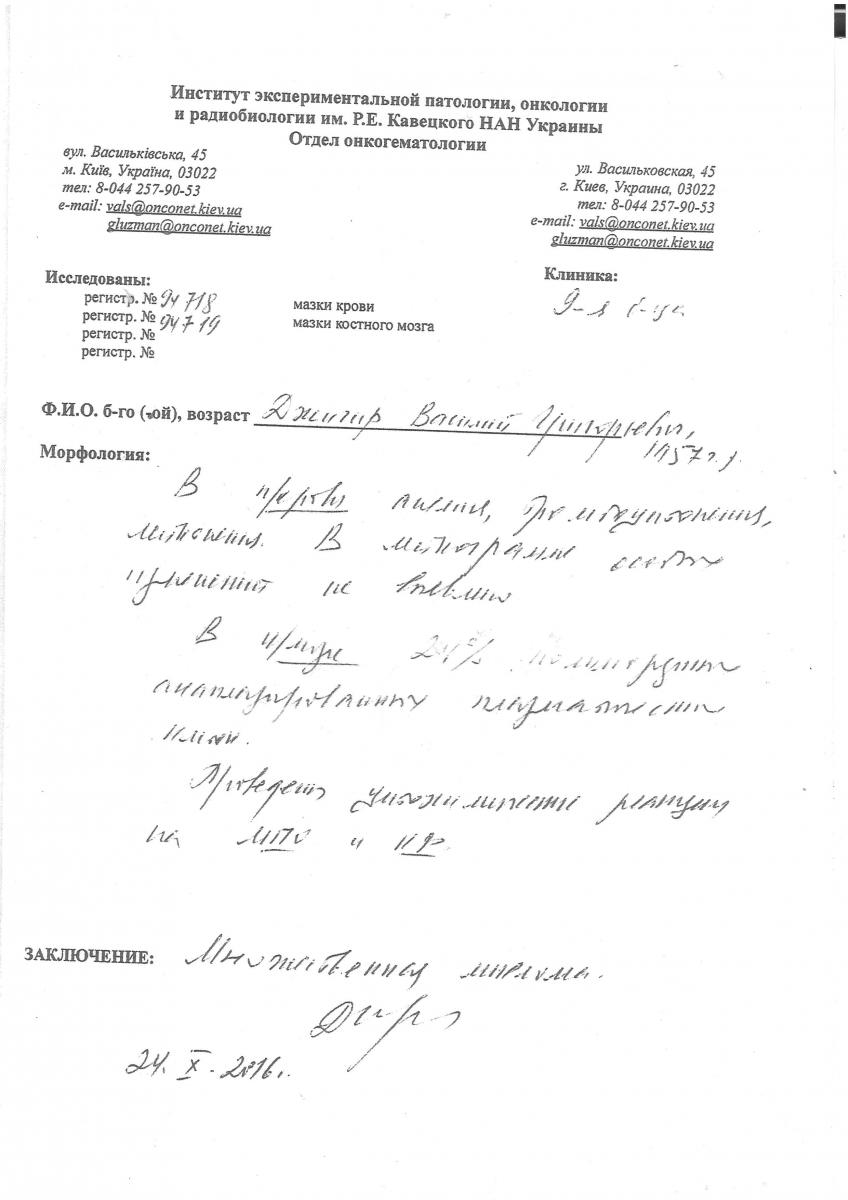 Институт экспериментальной патологии, онкологии
и радиобиологии им. Р.Е. Кавецкого НАН Украины
Отдел онкогематологии
вул. Васильківська, 45
м. Київ, Україна, 03022
тел: 8-044 257-90-53
e-mail: vals@onconet.kiev.ua
gluzman@onconet.kiev.ua
ул. Васильковская, 45
г. Киев, Украина, 03022
тел: 8-044 257-90-53
e-mail: vals@onconet.kiev.ua
gluzman@onconet.kiev.ua
Исследованы:
регистр. № 94718
регистр. № 94719
регистр. №
регистр. №
мазки крови
мазки костного мозга
Клиника:
9-я б-ца
Ф.И.О. б-го (-ой), возраст Джигир Василий Григорьевич,
1957 г.р.
Морфология:
В п/крови анемия, тромбоцитопения,
лейкопения. В лейкограмме особых
изменений не выявлено
В к/мозге
анаплазированных плазматических
клеток.
Проведены цитохимические реакции
на МПО и КФ.
ЗАКЛЮЧЕНИЕ: Множественная миелома.
24. X. 2016г.